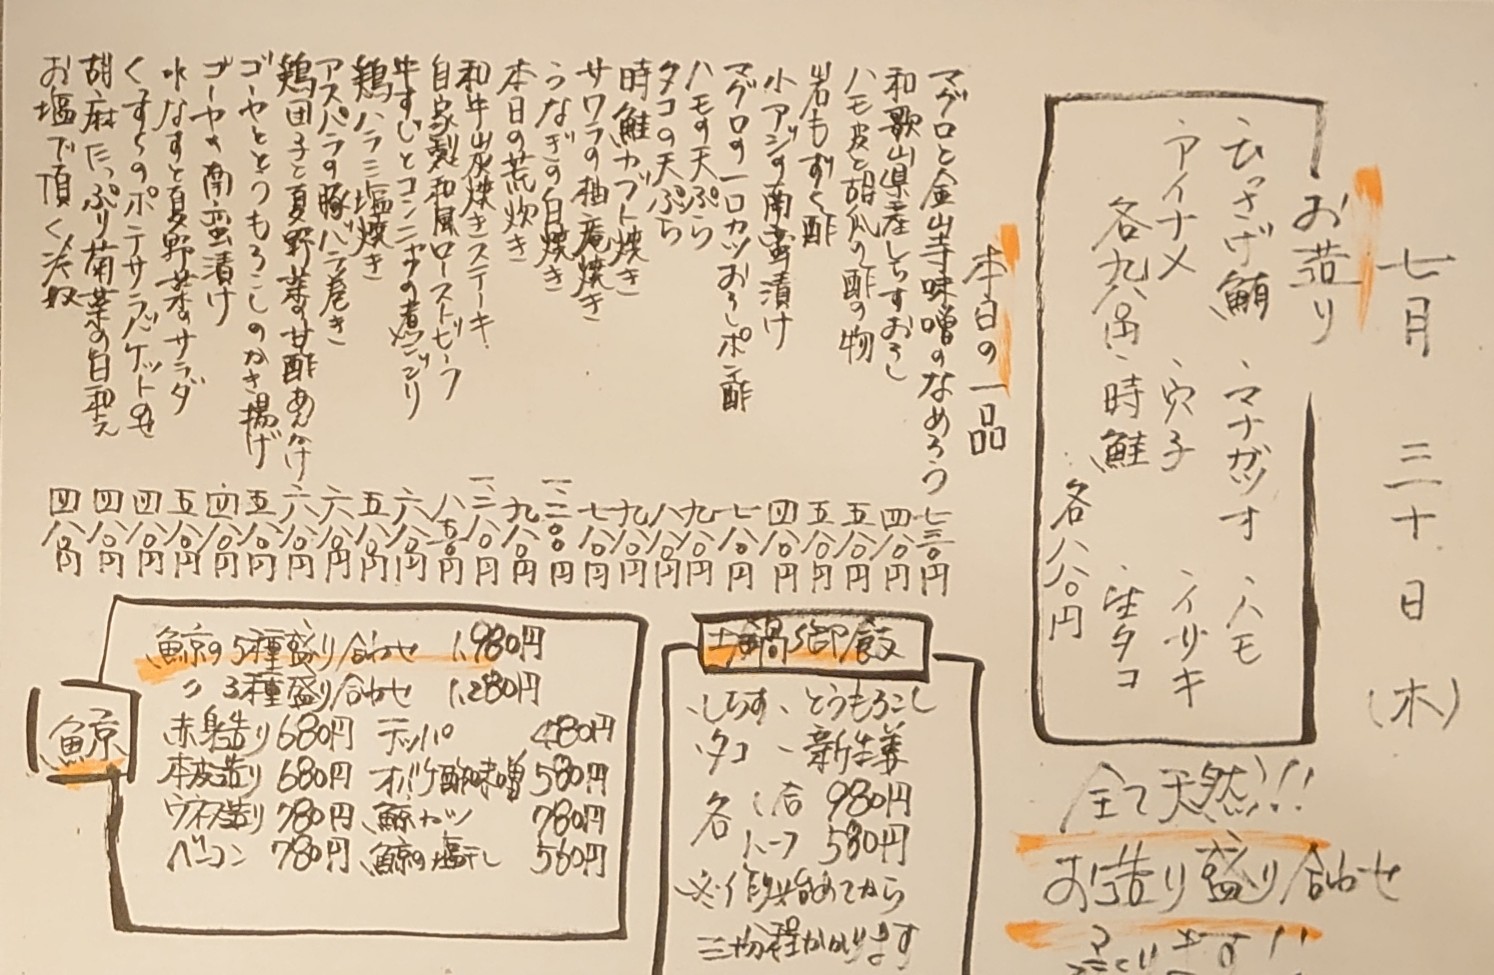 七月 三十日 (木)
お造り
・ひっさげ鮪 ・マナガツオ ・ハモ
・アイナメ ・穴子 ・イサキ
各九八〇円
・時鮭 ・生タコ
各八八〇円
全て天然!!
お造り盛り合わせ
本日の一品
マグロと金山寺味噌のなめろう 七三〇円
和歌山県産しらすおろし 四八〇円
ハモ皮と胡瓜の酢の物 五八〇円
岩もずく酢 五八〇円
小アジの南蛮漬け 四八〇円
マグロの一口カツおろしポン酢 七八〇円
ハモの天ぷら 九八〇円
タコの天ぷら 八八〇円
時鮭カブト焼き 九八〇円
サワラの柚庵焼き 七八〇円
うなぎの白焼き
本日の荒炊き 九八〇円
和牛炭焼きステーキ
自家製和風ローストビーフ 八五〇円
牛すじとコンニャクの煮こごり 六八〇円
鶏ハラミ塩焼き 五八〇円
アスパラの豚バラ巻き 六八〇円
鶏団子と夏野菜の甘酢あんかけ 六八〇円
ゴーヤととうもろこしのかき揚げ 五八〇円
ゴーヤの南蛮漬け 四八〇円
水なすと夏野菜のサラダ 五八〇円
くずしのポテサラバゲットのせ 四八〇円
胡麻たっぷり菊菜の白和え 四八〇円
お塩で頂く冷奴 四八〇円
土鍋御飯
・しらす ・とうもろこし
・タコ ・新生姜
各 一合 980円
ハーフ 580円
※作り始めてから
三十分程かかります
鯨
鯨の5種盛り合わせ 1,980円
〃 3種盛り合わせ 1,280円
赤身造り 680円 テッパ 480円
本皮造り 680円 オバケ酢味噌 580円
ウネス造り 780円 鯨カツ 780円
ベーコン 780円 鯨の塩干し 560円